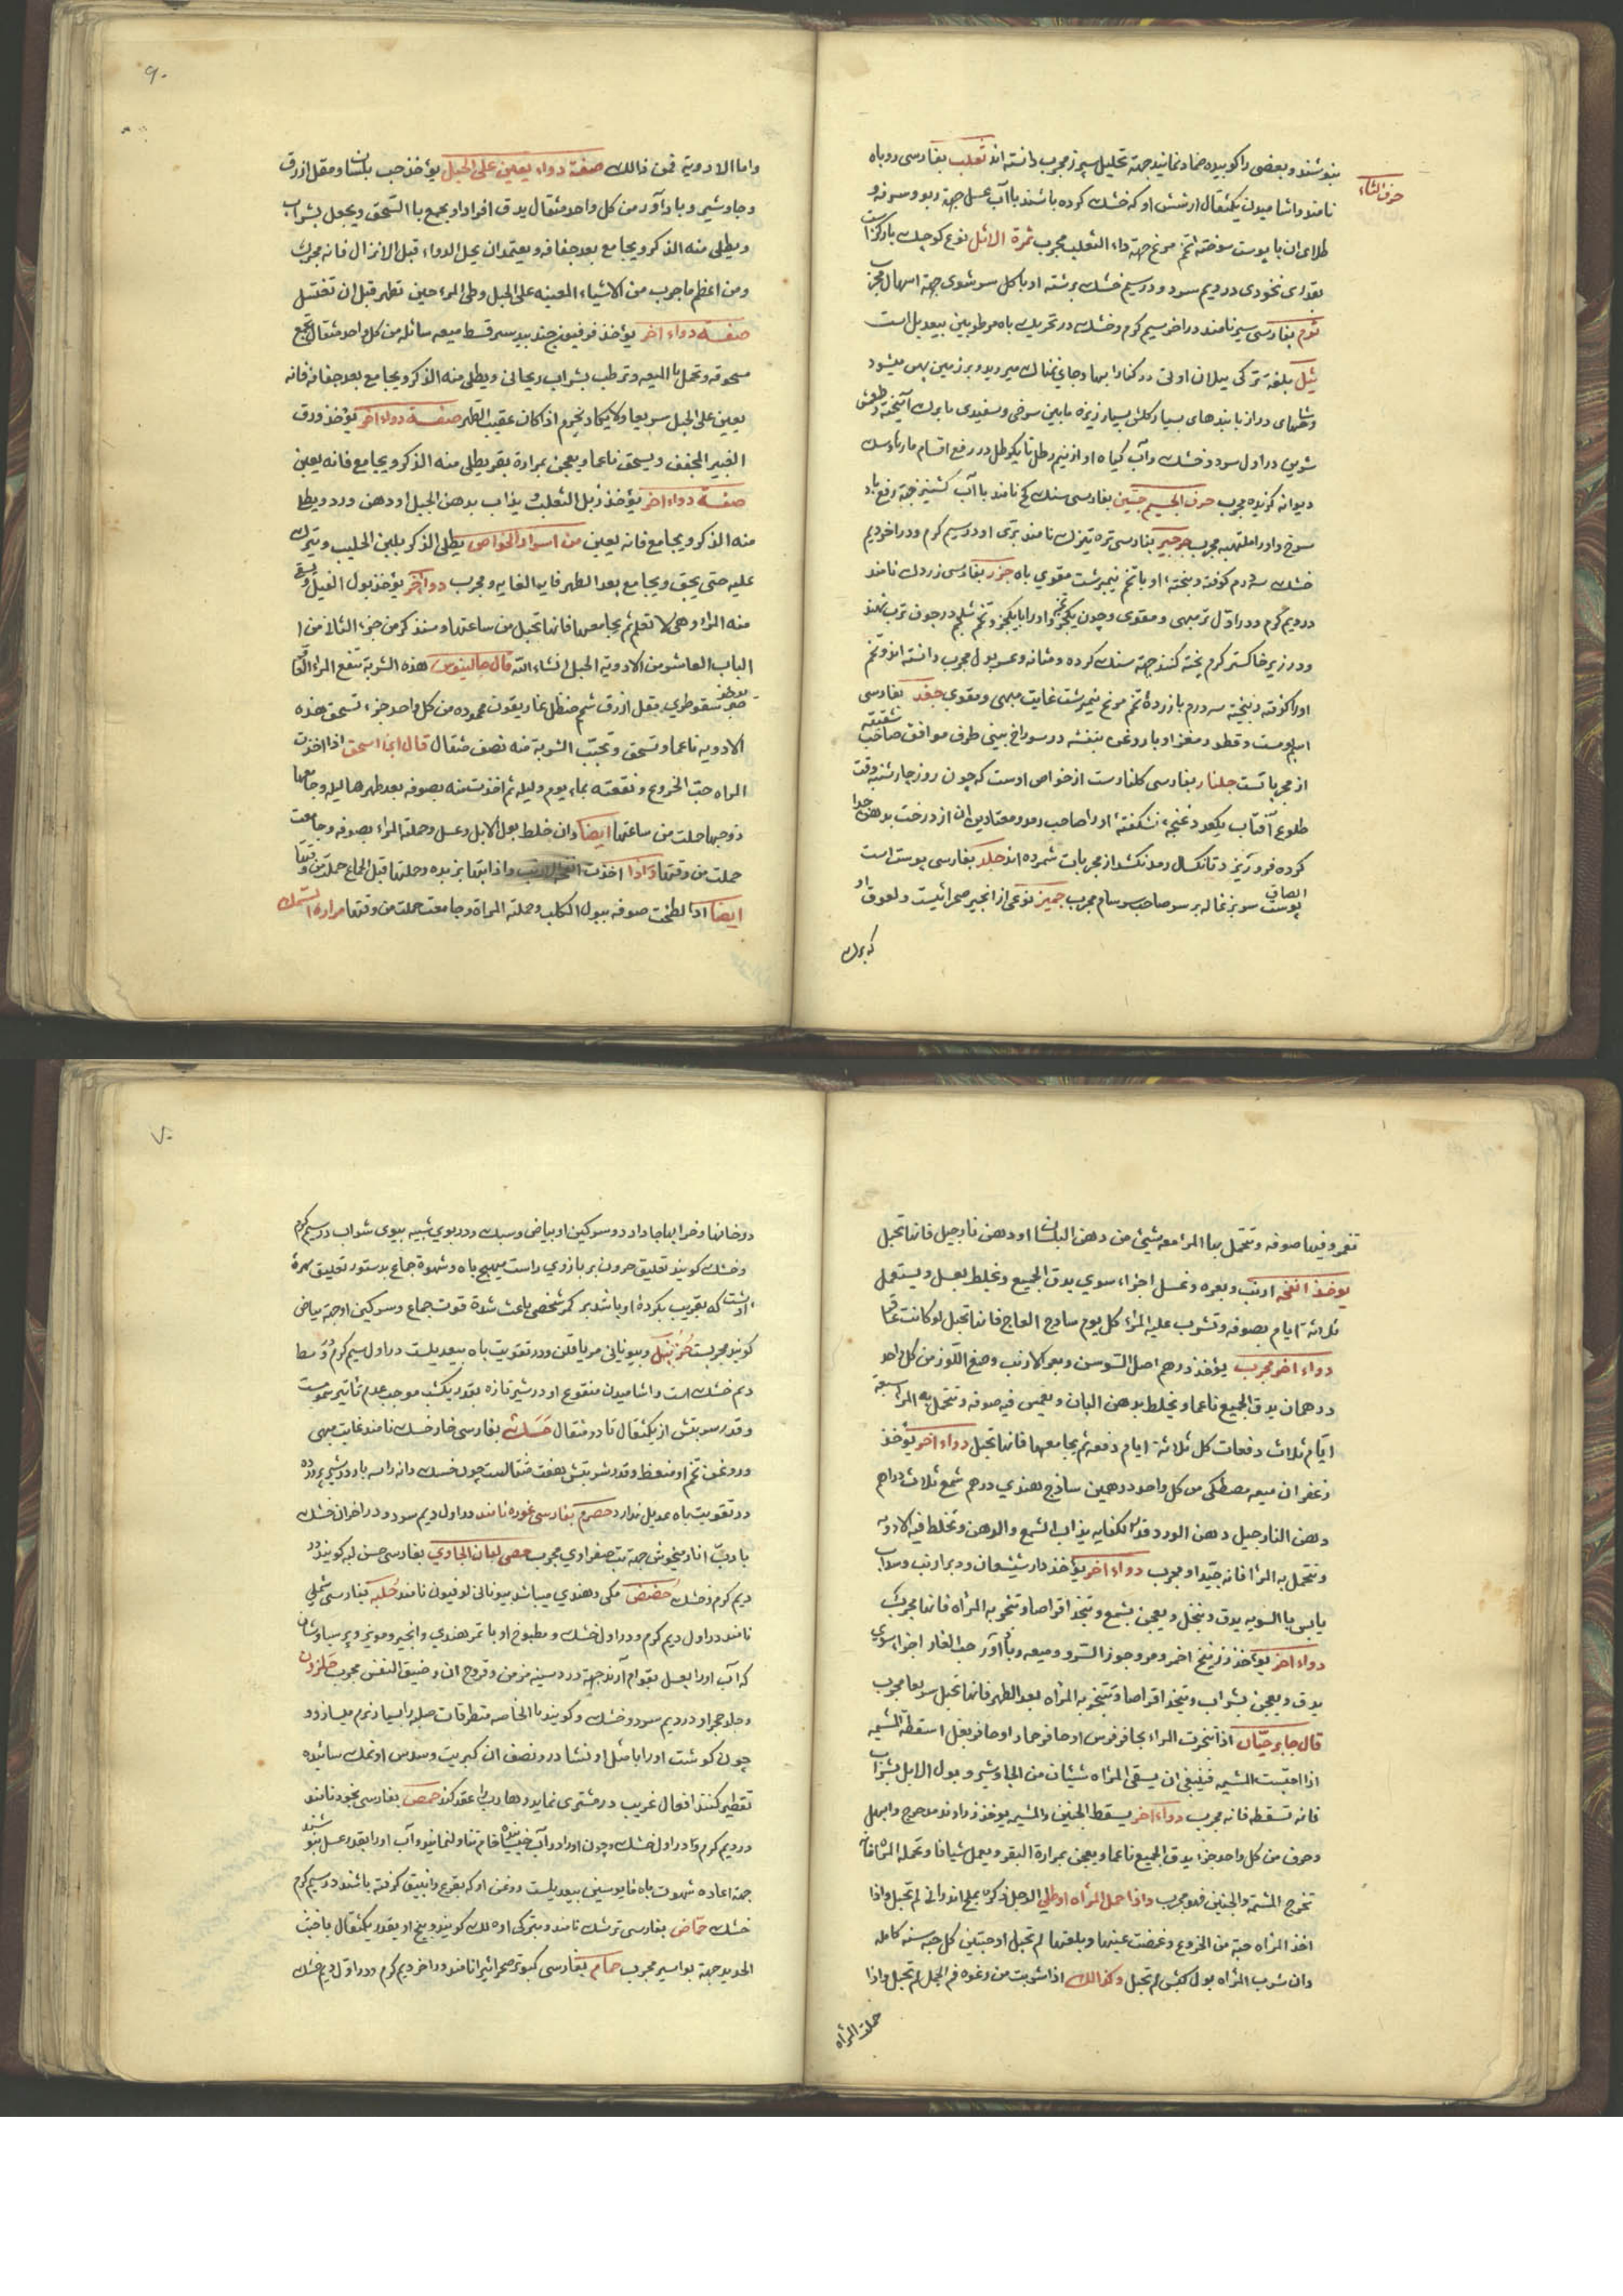 حرف الثاء
بنوشند و بعضی را کوبیده ضماد نمایند جهة تحلیل سپرز مجرب دانسته اند ثعلب بفارسی روباه
نامند و اشامیدن یکمثقال از شش او که خشک کرده باشند با آب عسل جهة ربو و سرفه و
طلای ان با پوست سوخته تخم مرغ جهة داء الثعلب مجرب ثمرة الاثل نوع کوچک
بقدر نخودی در دویم سرد و در سیم خشک برشته او با کل سر شوی جهة اسهال مجرب
ثوم بفارسی سیر نامند در اخر سیم کرم و خشک در تحریک باه مرطوبین بیعدیل است
ثیل بلغة ترکی بیلان اوتی در کنار ابها و جای نمناک میروید و بر زمین پهن میشود
و شاخهای دراز با بندهای بسیار کلش بسیار ریزه مابین سرخی و سفیدی با برک
شیرین در اول سرد و خشک و آب کیاه او از نیم رطل تا یکرطل در رفع اقسام مار و سک
دیوانه کزیده مجرب حرف الجیم جبسین بفارسی سنک کچ نامند با آب کشنیز جهة رفع باد
سرخ و اورام ملتهبه مجرب جرجیر بفارسی تره تیزک نامند بری او در سیم کرم و در اخر دیم
خشک سه درم کوفته و بیخته او با تخم نیمبرشت مقوی باه جزر بفارسی زردک نامند
در دویم کرم و در اول تر مبهی و مقوی و چون یکجزو او را با یکجزو تخم شلجم در جوف ترب نهند
و در زیر خاکستر کرم پخته کنند جهة سنک کرده و مثانه و عسر بول مجرب دانسته اند و تخم
او را کوفته و بیخته سه درم با زردهٔ تخم مرغ نیمبرشت غایت مبهی و مقوی جغد بفارسی
اسم بومست و قطور مغز او با روغن بنفشه در سوراخ بینی طرف موافق صاحب شقیقه
از مجرباتست جلنار بفارسی کلنار است از خواص اوست که چون روز چارشنبه وقت
طلوع آفتاب یکعدد غنچه نشکفته او را صاحب رمد و معتاد بدهن ان از درخت بدهن جدا
کرده فرو بریزد تا یکسال رمد نکشد از مجربات شمرده اند جلد بفارسی پوست است
پوست سر بزغاله بر سر صاحب سرسام مجرب جمیز نوعی از انجیر صحرائیست و لعوق
که برک
۹۰
واما الادویه فمن ذالک صفة دواء یعین علی الحبل یؤخذ حب بلسان و مقل ازرق
وجاوشیر و بادآورد من کل واحد مثقال یدق افرادا و یجمع با السحق و یعجن بشراب
ویطلی منه الذکر و یجامع بعد جفافه و یعتمد ان یحل الدواء قبل الانزال فانه مجرب
ومن اعظم ما جرب من الاشیاء المعینه علی الحبل وطی المراء حین تطهر قبل ان تغتسل
صفة دواء اخر یؤخذ فرفیون جندبیدستر قسط میعه سائله من کل واحد مثقال یجمع
مسحوقه و تحل با المیعه و ترطب بشراب ریحانی و یطلی منه الذکر و یجامع بعد جفافه فانه
یعین علی الحبل سریعا و لا یکاد یخرم اذا کان عقیب الطهر صفة دواء اخر یؤخذ ورق
الغبیر المجفف و یسحق ناعما و یعجن بمرارة بقر یطلی منه الذکر و یجامع فانه یعین
صفة دواء اخر یؤخذ زبل الثعلب و یذاب بدهن الجبل او دهن ورد و یطلا
منه الذکر و یجامع فانه یعین من اسرار الخواص یطلی الذکر بلبن الحلیب و یترک
علیه حتی یجف و یجامع بعد الطهر فایه الغایه و مجرب دواء اخر یؤخذ بول الفیل و یسقی
منه المراء و هی لا تعلم ثم یجامعها فانها تحبل من ساعتها و سنذکر من جزء الثالث من
الباب العاشر من الادویة الحبل انشاء الله قال جالینوس هذه الشربة تنفع المراء
صبر سقوطری مقل ازرق شحم حنظل غاریقون محموده من کل واحد جزء تسحق هذه
الادویه ناعما و تسحق و تحبب الشربة منه نصف مثقال قال ابن اسحق اذا اخذت
المراه حب الخروع و نقعته بماء یوم و لیله ثم اخذت منه بصوفه بعد طهرها لیله و جامعها
زوجها حملت من ساعتها ایضا وان خلط بول الابل و عسل و حملة المراء بصوفه و جامعت
حملت من وقتها و اذا اخذت انفحة الارنب و اذابتها بزبده و حملتها قبل الجماع حملت من وقتها
ایضا اذا لطخت صوفه ببول الکلب و حملته المراة و جامعت حملت من وقتها مرارة السمک
تغمر و فیها صوفه و تتحمل بها المراء معه شیئ من دهن البلسان او دهن نارجیل فانها تحبل
یوخذ انفحه ارنب و بعره و عسل اجزاء سوی یدق الجمیع و یخلط بعسل و یستعمل
ثلاثة ایام بصوفه و تشرب علیه المراء کل یوم ساذج العاج فانها تحبل لو کانت عاقرا
دواء اخر مجرب یؤخذ درهم اصل السوسن و بعر الارنب و صمغ اللوز من کل واحد
درهمان یدق الجمیع ناعما و یخلط بدهن البان و یغمس فیه صوفه و تتحمل به المراء سبعة
ایام ثلاث دفعات کل ثلاثة ایام دفعه ثم یجامعها فانها تحبل دواء اخر یؤخذ
زعفران میعه مصطکی من کل واحد درهمین ساذج هندی درهم شمع ثلاث دراهم
دهن النارجیل دهن الورد قدر الکفایه یذاب الشمع والدهن و تخلط فیه الادویه
و تتحمل به المراء فانه جیدا و مجرب دواء اخر یؤخذ دارشیشعان و وبر ارنب و سذاب
یابس با السویه یدق و ینخل و یعجن بشمع و یتخذ اقراصا و تبخر به المراه فانها مجرب
دواء اخر یؤخذ زرنیخ احمر و مر و جوز السرو و میعه و بادآورد حب الغار اجزاء سوی
یدق و یعجن بشراب و یتخذ اقراصا و تتبخر به المراه بعد الطهر فانها تحبل سریعا مجرب
قال جابر حیّان اذا تبخرت المراء بحافر فرس او حافر حمار او حافر بغل اسقطة المشیمه
اذا احتبست المشیمه فینبغی ان یسقی المراه شیئان من الجاوشیر و بول الابل بشراب
فانه تسقطه فانه مجرب دواء اخر یسقط الجنین والمشیمه یوخذ زراوند مدحرج و ابهل
و حرف من کل واحد جزء یدق الجمیع ناعما و یعجن بمرارة البقر و یعمل شیافا و تحمله المراه فانه
تخرج المشیمه والجنین فهو مجرب و اذا حمل المراه او طلی الرجل ذکره بملح اندرانی لم تحبل و اذا
اخذ المراه حبة من الخروع و غمضت عینها و بلعتها لم تحبل او حبتین کل حبه سنه کامله
وان شرب المراه بول کبش لم تحبل و کذالک اذا شربت من رغوه فم الجمل لم تحبل و اذا
حملت المراه
۷۰
در خانها و خرابها جا دارد و سرکین او بیاض و سبک و در بوی شبیه ببوی شراب در سیم کرم
و خشک کویند تعلیق حردون بر بازوی راست مهیج باه و شهوة جماع بدستور تعلیق مهرهٔ
پشت که بقریب بکردهٔ او باشد بر کمر شخصی باعث شدة قوت جماع و سرکین او جهة بیاض
کویند مجربست حزنبل و بیونانی مریافلن و در تقویت باه بیعدیلست در اول سیم کرم و در وسط
دیم خشک است و اشامیدن منقوع او در شیر تازه بقدر یکشب موجب عدم تاثیر سمومست
و قدر شربتش از یکمثقال تا دو مثقال حَسَک بفارسی خار خسک نامند غایت مبهی
و روغن تخم او منعظ و قدر شربتش هفت مثقالست چون خسک دانه را سه بار در شیر پرورده
در تقویت باه عدیل ندارد حصرم بفارسی غوره نامند در اول دیم سرد و در اخر ان خشک
با ربّ انار میخوش جهة تب صفراوی مجرب حصی لبان الجاوی بفارسی حسن لبه کویند در
دیم کرم و خشک حُضَض مکی و هندی میباشد بیونانی لوفیون نامند حُلبه بفارسی شملی
نامند در اول دیم کرم و در اول خشک و مطبوخ او با تمر هندی و انجیر و مویز و پر سیاوشان
که آب او را بعسل بقوام آرند جهة درد سینه مزمن و قروح ان و ضیق النفس مجرب حلزون
و حلو حجر او در دیم سرد و خشک و کویند با الخاصه متطرقات صلبه را بسیار نرم میسازد و
چون کوشت او را با مثل او نشادر و نصف ان کبریت و سدس او نمک سائیده
تقطیر کنند افعال غریب در مشتری نماید و رهارب را عقد کند حمص بفارسی نخود نامند
در دیم کرم و تا در اول خشک و چون او را در آب خیسانده خام تناول نمایند و آب او را بقدر عسل بنوشند
جهة اعاده شهوت باه مایوسین بیعدیلست و روغن او که بقرع و انبیق کرفته باشند در سیم کرم
خشک حمّاض بفارسی ترشک نامند و بترکی اوه لک کویند و بیخ او بقدر یکمثقال با خبث
الحدید جهة بواسیر مجرب حمام بفارسی کبوتر صحرائیرا نامند در اخر دیم کرم و در اول دیم خشک